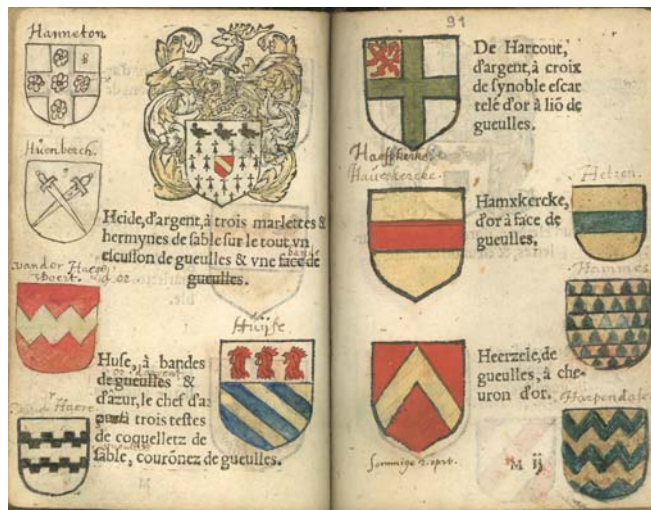 Hanneton
Huenberch.
Heide, d'argent, à trois marlettes &
hermynes de sable sur le tout vn
escusson de gueulles & vne face de
bande
gueulles.
van der Haege
d'or
Huyse
Huse, à bandes
d'or d'argent
de gueulles &
d'azur, le chef d'ar
à trois testes
de coquelletz de
sable, courõnez de gueulles.
Haere
91
De Harcout,
d'argent, à croix
de synoble escar
telé d'or à liõ de
gueulles.
Haeffkerke
Hauerkercke.
Hamxkercke,
d'or à face de
gueulles.
Hetzen.
Hammes
Heerzele, de
gueulles, à che-
uron d'or.
Harpendale
M ij